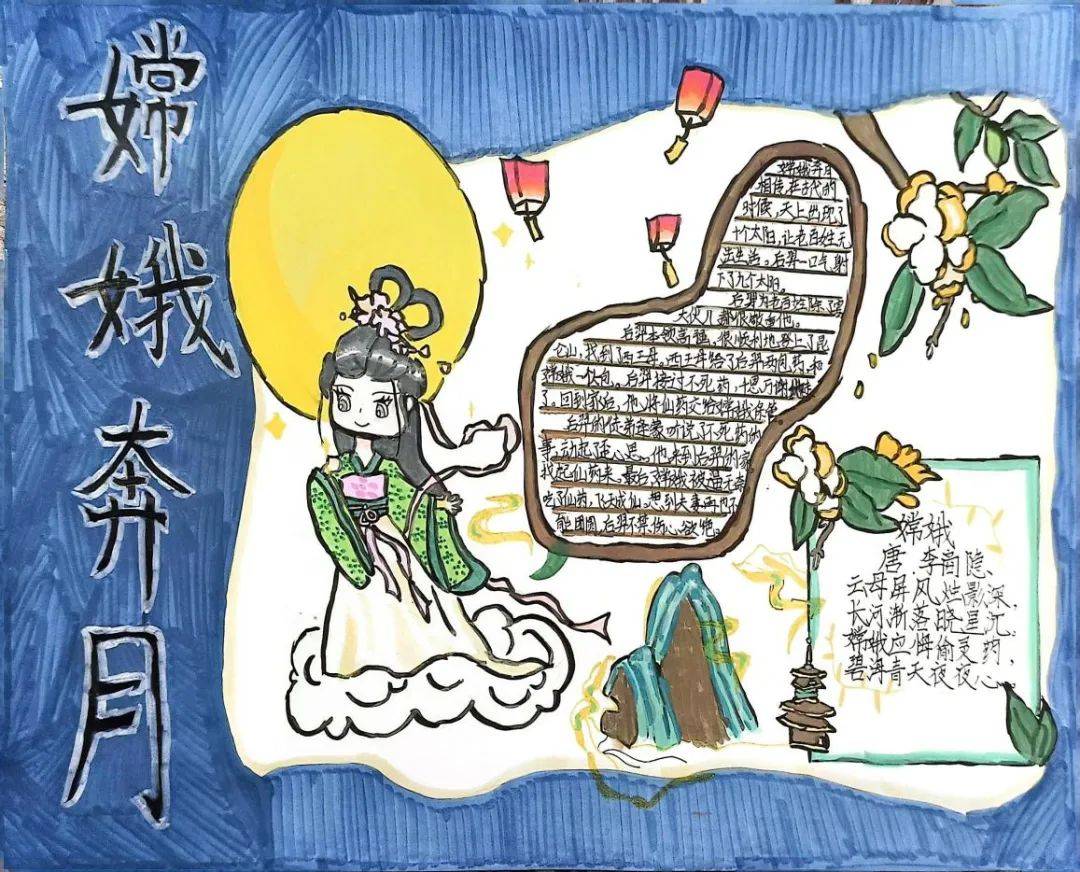 嫦娥奔月
嫦娥奔月
相传,在古代的
时候,天上出现了
十个太阳,让老百姓无
法生活。后羿一口气射
下了九个太阳。
后羿为老百姓除了害
大伙儿都很敬重他。
后羿本领高强,很顺利地登上了昆
仑山,找到了西王母,西王母给了后羿两包药,和
嫦娥一人一包。后羿接过不死药,十恩万谢地走
了。回到家后,他将仙药交给嫦娥保管
后羿的徒弟逢蒙听说了不死药的
事,动起了歪心思。他来到后羿的家
找起仙药来。最后嫦娥被逼无奈
吃了仙药,飞天成仙。想到夫妻再也不
能团圆,后羿不伤心欲绝。
嫦娥
唐 李商隐、
云母屏风烛影深,
长河渐落晓星沉。
嫦娥应悔偷灵药,
碧海青天夜夜心。